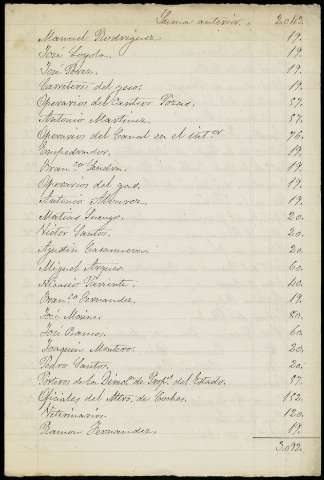 Suma anterior. 2.042.
Manuel Rodriguez. 19.
José Loyola. 19.
José Perez. 19.
Carreteros del yeso. 19.
Operarios del Cantero Pozas. 57.
Antonio Martinez. 57.
Operarios del Canal en el int.or 76.
Empedrador. 19.
Fran.co 19.
Operarios del gas. 19.
Antonio Alvarez. 19.
Matias Luengo. 20.
Victor Santos. 20.
Agustin Casanueva. 20.
Miguel Arques. 60.
Nicasio Pariente. 40.
Fran.co Fernandez. 19.
José Molina. 80.
José Ramos. 60.
Joaquin Montero. 20.
Pedro Santos. 20.
Porteros de la de Prop.s del Estado. 57.
Oficiales del Mtro. de Coches. 152.
Veterinarios. 120.
Ramon Fernandez. 19.
3.092.